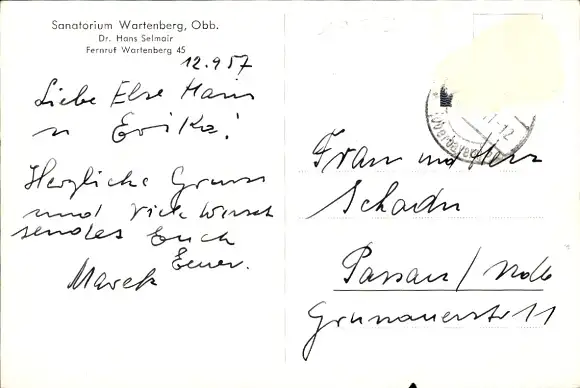 Sanatorium Wartenberg, Obb.
Dr. Hans Selmair
Fernruf Wartenberg 45
12.9.57
Liebe Else Hans
u Erika!
Herzliche Gruss
und viele Wunsch
sendes Euch
Euer.
Marek
11-12
(Oberbayern)
Frau und Herr
Schadn
Passau / Ndb
Grunauerstr 11